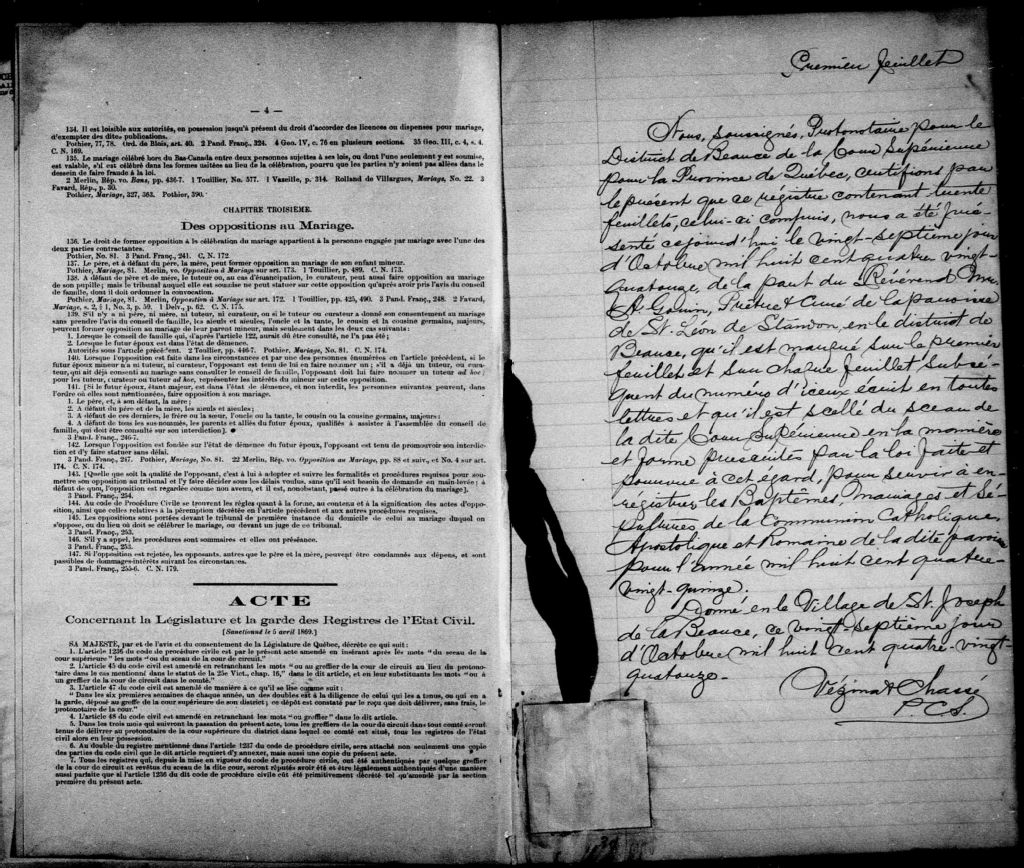 — 4 —
134. Il est loisible aux autorités, en possession jusqu'à présent du droit d'accorder des licences ou dispenses pour mariage,
d'exempter des dites publications.
Pothier, 77, 78. Ord. de Blois, art. 40. 2 Pand. Franç., 324. 4 Geo. IV, c. 76 en plusieurs sections. 35 Geo. III, c. 4, s. 4.
C. N. 169.
135. Le mariage célébré hors du Bas-Canada entre deux personnes sujettes à ses lois, ou dont l'une seulement y est soumise,
est valable, s'il est célébré dans les formes usitées au lieu de la célébration, pourvu que les parties n'y soient pas allées dans le
dessein de faire fraude à la loi.
2 Merlin, Rép. vo. Bans, pp. 436-7. 1 Touillier, No. 577. 1 Vazeille, p. 314. Rolland de Villargues, Mariage, No. 22. 3
Favard, Rép., p. 30.
Pothier, Mariage, 327, 363. Pothier, 390.
CHAPITRE TROISIÈME.
Des oppositions au Mariage.
136. Le droit de former opposition à la célébration du mariage appartient à la personne engagée par mariage avec l'une des
deux parties contractantes.
Pothier, No. 81. 3 Pand. Franç., 241. C. N. 172.
137. Le père, et à défaut du père, la mère, peut former opposition au mariage de son enfant mineur.
Pothier, Mariage, 81. Merlin, vo. Opposition à Mariage sur art. 173. 1 Touillier, p. 489. C. N. 173.
138. A défaut de père et de mère, le tuteur ou, au cas d'émancipation, le curateur, peut aussi faire opposition au mariage de
son pupille; mais le tribunal auquel elle est soumise ne peut statuer sur cette opposition qu'après avoir pris l'avis du conseil de
famille, dont il doit ordonner la convocation.
Pothier, Mariage, 81. Merlin, Opposition à Mariage sur art. 172. 1 Touillier, pp. 425, 490. 3 Pand. Franç., 248. 2 Favard,
Mariage, s. 2, § 1, No. 3, p. 59. 1 Delv., p. 62. C. N. 175.
139. S'il n'y a ni père, ni mère, ni tuteur, ni curateur, ou si le tuteur ou curateur a donné son consentement au mariage
sans prendre l'avis du conseil de famille, les aïeuls et aïeules, l'oncle et la tante, le cousin et la cousine germains, majeurs,
peuvent former opposition au mariage de leur parent mineur, mais seulement dans les deux cas suivants:
1. Lorsque le conseil de famille qui, d'après l'article 122, aurait dû être consulté, ne l'a pas été;
2. Lorsque le futur époux est dans l'état de démence.
Autorités sous l'article précédent. 2 Touillier, pp. 446-7. Pothier, Mariage, No. 81. C. N. 174.
140. Lorsque l'opposition est faite dans les circonstances et par une des personnes énumérées en l'article précédent, si le
futur époux mineur n'a ni tuteur, ni curateur, l'opposant est tenu de lui en faire nommer un; s'il a déjà un tuteur, ou cura-
teur, qui ait déjà consenti au mariage sans consulter le conseil de famille, l'opposant doit lui faire nommer un tuteur ad hoc;
pour les tuteur, curateur ou tuteur ad hoc, représenter les intérêts du mineur sur cette opposition.
141. [Si le futur époux, étant majeur, est dans l'état de démence, et non interdit, les personnes suivantes peuvent, dans
l'ordre où elles sont mentionnées, faire opposition à son mariage.
1. Le père, et, à son défaut, la mère;
2. A défaut du père et de la mère, les aïeuls et aïeules;
3. A défaut de ces derniers, le frère ou la sœur, l'oncle ou la tante, le cousin ou la cousine germains, majeurs;
4. A défaut de tous les sus-nommés, les parents et alliés du futur époux, qualifiés à assister à l'assemblée du conseil de
famille, qui doit être consulté sur son interdiction].
3 Pand. Franç., 246-7.
142. Lorsque l'opposition est fondée sur l'état de démence du futur époux, l'opposant est tenu de promouvoir son interdic-
tion et d'y faire statuer sans délai.
3 Pand. Franç., 247. Pothier, Mariage, No. 81. 22 Merlin, Rép. vo. Opposition au Mariage, pp. 88 et suiv., et No. 4 sur art.
174. C. N. 174.
143. [Quelque que soit la qualité de l'opposant, c'est à lui à adopter et suivre les formalités et procédures requises pour sou-
mettre son opposition au tribunal et l'y faire décider sous les délais voulus, sans qu'il soit besoin de demande en main-levée; à
défaut de quoi, l'opposition est regardée comme non avenu, et il est, nonobstant, passé outre à la célébration du mariage].
3 Pand. Franç., 254.
144. Au code de Procédure Civile se trouvent les règles quant à la forme, au contenu et à la signification des actes d'oppo-
sition, ainsi que celles relatives à la péremption décrétée en l'article précédent et aux autres procédures requises.
145. Les oppositions sont portées devant le tribunal de première instance du domicile de celui au mariage duquel on
s'oppose, ou du lieu où doit se célébrer le mariage, ou devant un juge de ce tribunal.
3 Pand. Franç., 253.
146. S'il y a appel, les procédures sont sommaires et elles ont préséance.
3 Pand. Franç., 253.
147. Si l'opposition est rejetée, les opposants, autres que le père et la mère, peuvent être condamnés aux dépens, et sont
passibles de dommages-intérêts suivant les circonstances.
3 Pand. Franç., 255-6. C. N. 179.
ACTE
Concernant la Législature et la garde des Registres de l'Etat Civil.
[Sanctionné le 5 avril 1869.]
SA MAJESTE, par et de l'avis et du consentement de la Législature de Québec, décrète ce qui suit:
1. L'article 1236 du code de procédure civile est par le présent acte amendé en insérant après les mots "du sceau de la
cour supérieure" les mots "ou du sceau de la cour de circuit."
2. L'article 45 du code civil est amendé en retranchant les mots "ou au greffier de la cour de circuit au lieu du protono-
taire dans le cas mentionné dans le statut de la 25e Vict., chap. 16," dans le dit article, et en leur substituants les mots "ou à
un greffier de la cour de circuit dans le comté."
3. L'article 47 du code civil est amendé de manière à ce qu'il se lise comme suit:
"Dans les six premières semaines de chaque année, un des doubles est à la diligence de celui qui les a tenus, ou qui en a
la garde, déposé au greffe de la cour supérieure de son district; ce dépôt est constaté par le reçu que doit délivrer, sans frais, le
protonotaire de la cour."
4. L'article 48 du code civil est amendé en retranchant les mots "ou greffier" dans le dit article.
5. Dans les trois mois qui suivront la passation du présent acte, tous les greffiers de la cour de circuit dans tout comté seront
tenus de délivrer au protonotaire de la cour supérieure du district dans lequel ce comté est situé, tous les registres de l'état
civil alors en leur possession.
6. Au double du registre mentionné dans l'article 1237 du code de procédure civile, sera attaché non seulement une copie
des parties du code civil que le dit article requiert d'y annexer, mais aussi une copie du présent acte.
7. Tous les registres qui, depuis la mise en vigueur du code de procédure civile, ont été authentiqués par quelque greffier
de la cour de circuit et revêtus du sceau de la dite cour, seront réputés avoir été et être légalement authentiqués d'une manière
aussi parfaite que si l'article 1236 du dit code de procédure civile eût été primitivement décrété tel qu'amendé par la section
première du présent acte.
Premier feuillet
Nous, soussignés, Protonotaire pour le
District de Beauce de la Cour Supérieure
pour la Province de Québec, certifions par
le présent que ce régistre contenant trente
feuillets, celui-ci compris, nous a été pré-
senté cejourd'hui le vingt-septième jour
d'Octobre mil huit cent quatre vingt-
quatorze, de la part du Révérend Mr.
A. Gouin, Prêtre & Curé de la paroisse
de St. Léon de Standon, en le district de
Beauce, qu'il est marqué sur le premier
feuillet et sur chaque feuillet subsé-
quent du numéro d'iceux écrit en toutes
lettres et qu'il est scellé du sceau de
la dite Cour Supérieure en la manière
et forme prescrites par la loi faite et
pourvue à cet égard, pour servir à en-
régistrer les Baptêmes Mariages et Sé-
pultures de la Communion Catholique,
Apostolique et Romaine de la dite paroisse
pour l'année mil huit cent quatre-
vingt-quinze.
Donné en le Village de St. Joseph
de la Beauce, ce vingt-septième jour
d'Octobre mil huit cent quatre-vingt-
quatorze-
Vézina & Chassé
P.C.S.